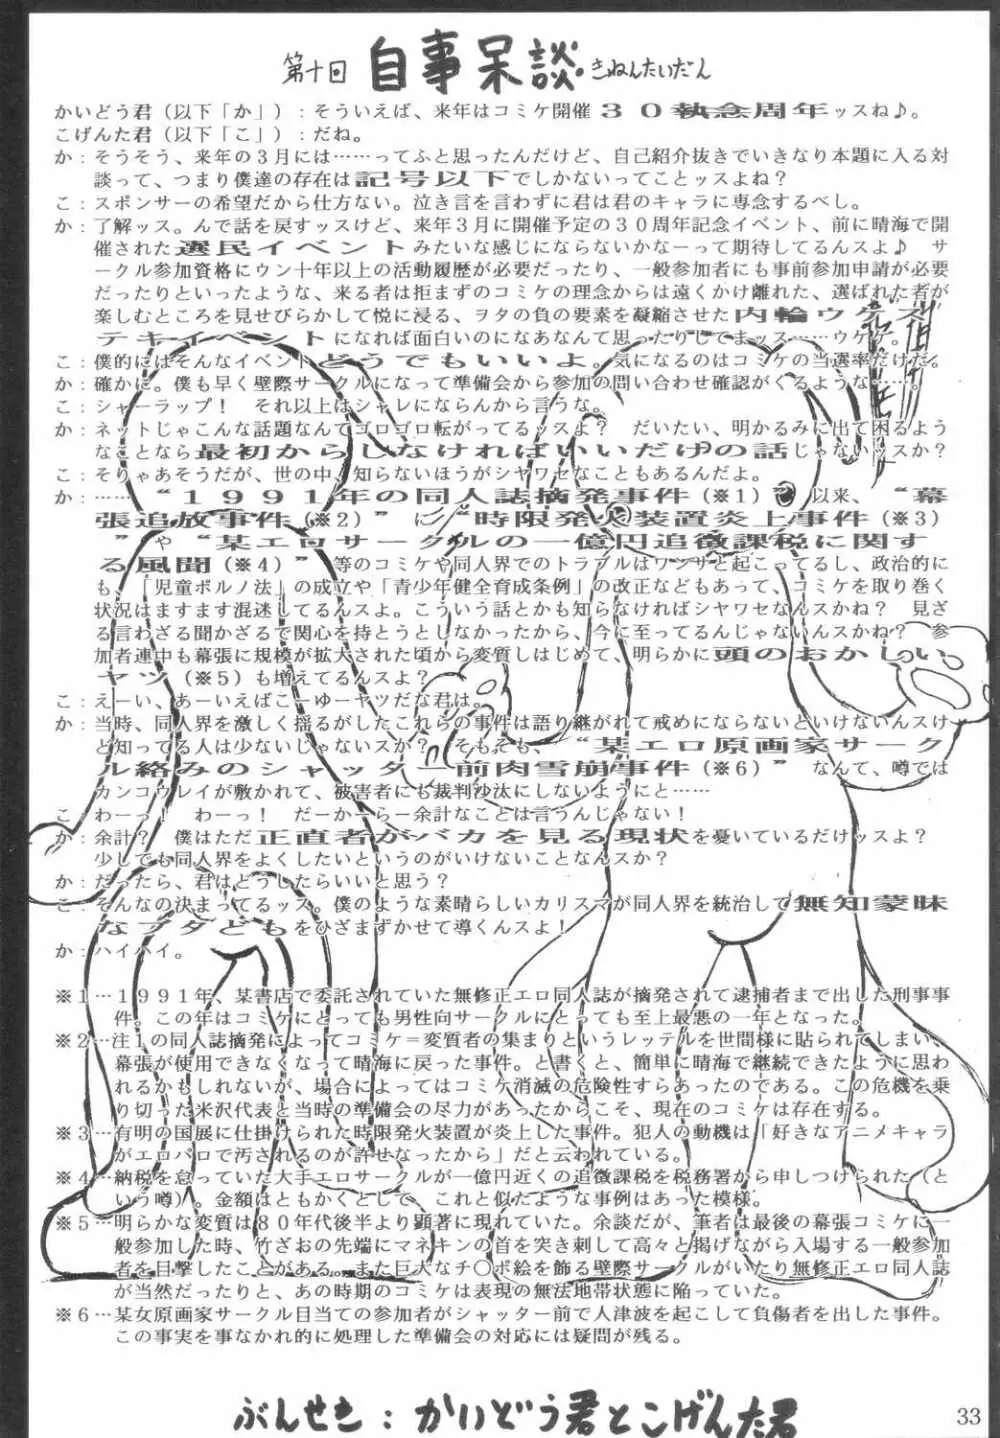 第十回 自事呆談 きねんたいだん
かいどう君（以下「か」）：そういえば、来年はコミケ開催３０執念周年ッスね♪。
こげんた君（以下「こ」）：だね。
か：そうそう、来年の３月には……ってふと思ったんだけど、自己紹介抜きでいきなり本題に入る対
談って、つまり僕達の存在は記号以下でしかないってことッスよね？
こ：スポンサーの希望だから仕方ない。泣き言を言わずに君は君のキャラに専念するべし。
か：了解ッス。んで話を戻すッスけど、来年３月に開催予定の３０周年記念イベント、前に晴海で開
催された選民イベントみたいな感じにならないかなーって期待してるんスよ♪　サ
ークル参加資格にウン十年以上の活動履歴が必要だったり、一般参加者にも事前参加申請が必要
だったりといったような、来る者は拒まずのコミケの理念からは遠くかけ離れた、選ばれた者が
楽しむところを見せびらかして悦に浸る、ヲタの負の要素を凝縮させた内輪ウケス
テキイベントになれば面白いのになあなんて思ったりしてまッス……ウケケ。
こ：僕的にはそんなイベントどうでもいいよ。気になるのはコミケの当選率だけだ。
か：確かに。僕も早く壁際サークルになって準備会から参加の問い合わせ確認がくるような……。
こ：シャーラップ！　それ以上はシャレにならんから言うな。
か：ネットじゃこんな話題なんてゴロゴロ転がってるッスよ？　だいたい、明かるみに出て困るよう
なことなら最初からしなければいいだけの話じゃないッスか？
こ：そりゃあそうだが、世の中、知らないほうがシヤワセなこともあるんだよ。
か：……“１９９１年の同人誌摘発事件（※１）”以来、“幕
張追放事件（※２）”に“時限発火装置炎上事件（※３）
”や“某エロサークルの一億円追徴課税に関す
る風聞（※４）”等のコミケや同人界でのトラブルはワンサと起こってるし、政治的に
も、「児童ポルノ法」の成立や「青少年健全育成条例」の改正などもあって、コミケを取り巻く
状況はますます混迷してるんスよ。こういう話とかも知らなければシヤワセなんスかね？　見ざ
る言わざる聞かざるで関心を持とうとしなかったから、今に至ってるんじゃないんスかね？　参
加者連中も幕張に規模が拡大された頃から変質しはじめて、明らかに頭のおかしい
ヤツ（※５）も増えてるんスよ？
こ：えーい、あーいえばこーゆーヤツだな君は。
か：当時、同人界を激しく揺るがしたこれらの事件は語り継がれて戒めにならないといけないんスけ
ど知ってる人は少ないじゃないスか？　そもそも、“某エロ原画家サーク
ル絡みのシャッター前肉雪崩事件（※６）”なんて、噂では
カンコウレイが敷かれて、被害者にも裁判沙汰にしないようにと……
こ：わーっ！　わーっ！　だーかーらー余計なことは言うんじゃない！
か：余計？　僕はただ正直者がバカを見る現状を憂いているだけッスよ？
少しでも同人界をよくしたいというのがいけないことなんスか？
か：だったら、君はどうしたらいいと思う？
こ：そんなの決まってるッス。僕のような素晴らしいカリスマが同人界を統治して無知蒙昧
なブタどもをひざまずかせて導くんスよ！
か：ハイハイ。
※１…１９９１年、某書店で委託されていた無修正エロ同人誌が摘発されて逮捕者まで出した刑事事
件。この年はコミケにとっても男性向サークルにとっても至上最悪の一年となった。
※２…注１の同人誌摘発によってコミケ＝変質者の集まりというレッテルを世間様に貼られてしまい、
幕張が使用できなくなって晴海に戻った事件。と書くと、簡単に晴海で継続できたように思わ
れるかもしれないが、場合によってはコミケ消滅の危険性すらあったのである。この危機を乗
り切った米沢代表と当時の準備会の尽力があったからこそ、現在のコミケは存在する。
※３…有明の国展に仕掛けられた時限発火装置が炎上した事件。犯人の動機は「好きなアニメキャラ
がエロパロで汚されるのが許せなったから」だと云われている。
※４…納税を怠っていた大手エロサークルが一億円近くの追徴課税を税務署から申しつけられた（と
いう噂）。金額はともかくとして、これと似たような事例はあった模様。
※５…明らかな変質は８０年代後半より顕著に現れていた。余談だが、筆者は最後の幕張コミケに一
般参加した時、竹ざおの先端にマネキンの首を突き刺して高々と掲げながら入場する一般参加
者を目撃したことがある。また巨大なチ〇ポ絵を飾る壁際サークルがいたり無修正エロ同人誌
が当然だったりと、あの時期のコミケは表現の無法地帯状態に陥っていた。
※６…某女原画家サークル目当ての参加者がシャッター前で人津波を起こして負傷者を出した事件。
この事実を事なかれ的に処理した準備会の対応には疑問が残る。
ぶんせき：かいどう君とこげんた君
33